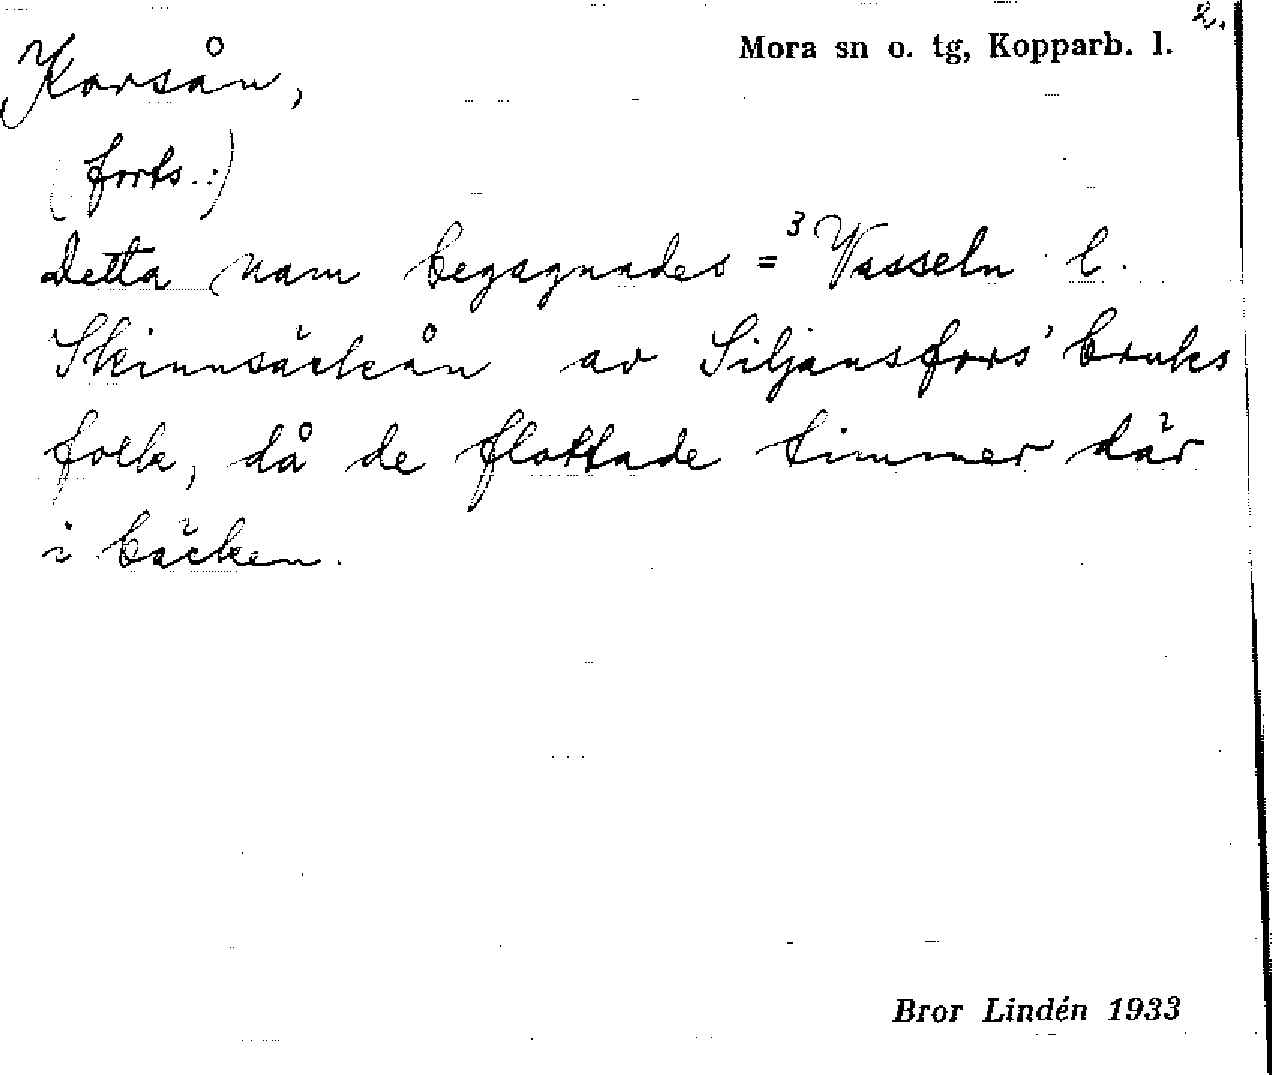 2.
Korsån,
Mora sn o. tg, Kopparb. l.
(forts.:)
Detta namn begagnades = ³Vasseln l.
Skinnsäckån av Siljansfors' bruks
folk, då de flottade timmer där
i bäcken.
Bror Lindén 1933